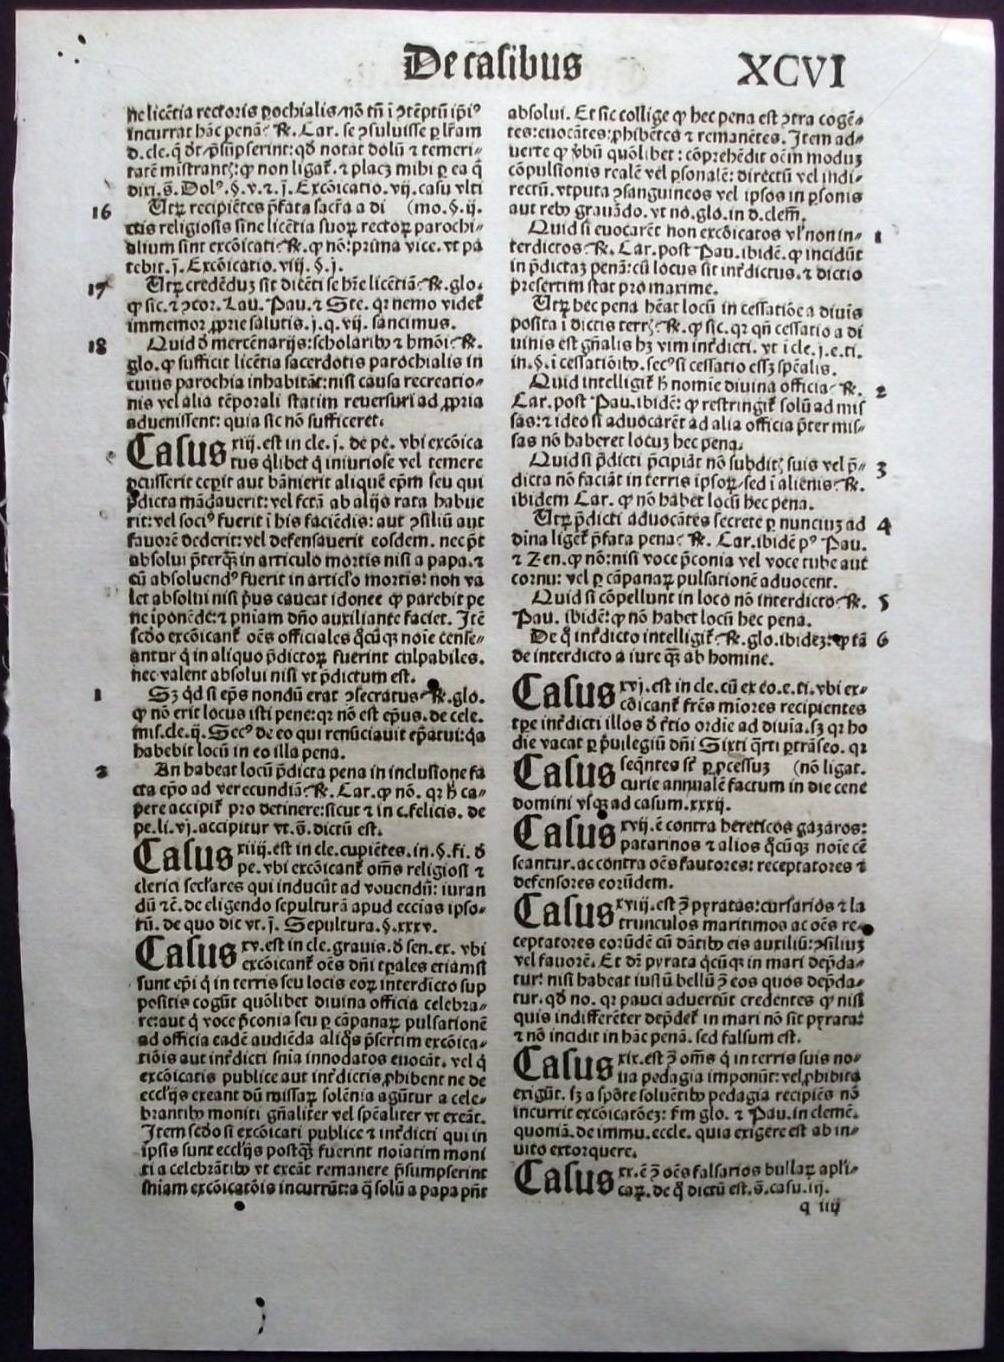 De casibus XCVI
ne licẽtia rectoris ꝑochialis/nõ tñ ĩ ↄtẽptũ ip̃iꝰ
incurrat hãc penã? ℞. Car. se ↄsuluisse ꝑ lr̃am
d. cle. q̃ dr̃ p̃sũpserint: qd̃ notat dolũ ⁊ temeri-
ꝙ non ligat̃. ⁊ placꝫ mihi ꝑ ea q̃
dixi. s̃. Dolꝰ. §. v. ⁊. j̃. Excõicatio. vij. casu vlti
16 Utꝝ recipiẽtes p̃fata sacr̃a a di (mo. §. ij.
ctis religiosis sine licẽtia suoꝝ rectoꝝ parochi-
alium sint excõicati? ℞. ꝙ nõ: prima vice. vt pa
tebit. j̃. Excõicatio. viij. §. j.
17 Utꝝ credẽdũ sit dicẽti se hr̃e licẽtiã? ℞. glo.
ꝙ sic. ⁊ ↄcor. Lau. Pau. ⁊ Ste. qꝛ nemo videt̃
immemor ꝓprie salutis. j. q. vij. sancimus.
18 Quid d̃ mercẽnarijs: scholaribꝰ ⁊ hmõi? ℞.
glo. ꝙ sufficit licẽtia sacerdotis parochialis in
cuius parochia inhabitãt: nisi causa recreatio-
nis vel alia tẽporali statim reuersuri ad ꝓpria
aduenissent: quia sic nõ sufficeret.
Casus xiij. est in cle. j. de pe. vbi excõica
tus q̃libet q̃ iniuriose vel temere
ꝑcusserit ceꝑit aut bãnierit aliquẽ ep̃m seu qui
p̃dicta mãdauerit: vel fctã ab alijs rata habue
rit: vel sociꝰ fuerit ĩ his faciẽdis: aut ↄsiliũ aut
fauorẽ dederit: vel defensauerit eosdem. nec p̃t
absolui p̃terq̃ꝫ in articulo mortis nisi a papa. ⁊
cũ absoluendꝰ fuerit in articl̃o mortis: non va
let absolui nisi p̃us caueat idonee ꝙ parebit pe
ne ĩponẽde: ⁊ pniam dño auxiliante faciet. Itẽ
scd̃o excõicant̃ oẽs officiales q̃cũqꝫ noĩe cense-
antur q̃ in aliquo p̃dictoꝝ fuerint culpabiles.
nec valent absolui nisi vt p̃dictum est.
1 Sꝫ qd̃ si ep̃s nondũ erat ↄsecratus? ℞. glo.
ꝙ nõ erit locus isti pene: qꝛ nõ est ep̃us. de cele.
mis. cle. ij. Secꝰ de eo qui renũciauit ep̃atui: q̃a
habebit locũ in eo illa pena.
2 An habeat locũ p̃dicta pena in inclusione fa
cta ep̃o ad verecundiã? ℞. Car. ꝙ nõ. qꝛ h̃ ca-
pere accipit̃ pro detinere: sicut ⁊ in c. felicis. de
pe. li. vj. accipitur vt. s̃. dictũ est.
Casus xiiij. est in cle. cupiẽtes. in. §. fi. d̃
pe. vbi excõicant̃ om̃s religiosi ⁊
clerici secl̃ares qui inducũt ad vouendũ: iuran
dũ ⁊c̃. de eligendo sepulturã apud eccĩas ipso-
rũ. de quo dic vt. j̃. Sepultura. §. xxxv.
Casus xv. est in cle. grauis. d̃ sen. ex. vbi
excõicant̃ oẽs dñi tp̃ales etiamsi
sunt ep̃i q̃ in terris seu locis eoꝝ interdicto sup
positis cogũt quõlibet diuina officia celebra-
re: aut q̃ voce p̃conia seu ꝑ cãpanaꝝ pulsationẽ
ad officia eadẽ audiẽda aliq̃s p̃sertim excõica-
tiõis aut inr̃dicti snĩa innodatos euocãt. vel q̃
excõicatis publice aut inr̃dictis ꝓhibent ne de
eccl̃ijs exeant dũ missaꝝ solẽnia agũtur a cele-
brantibꝰ moniti gñaliter vel sp̃ealiter vt exeãt.
Item scd̃o si excõicati publice ⁊ inr̃dicti qui in
ip̃sis sunt eccl̃ijs postq̃ꝫ fuerint noĩatim moni
ti a celebrãtibꝰ vt exeãt remanere p̃sumpserint
sniam excõicatõis incurrũt: a q̃ solũ a papa pñt
absolui. Et sic collige ꝙ hec pena est ↄtra cogẽ-
tes: euocãtes: ꝓhibẽtes ⁊ remanẽtes. Item ad-
uerte ꝙ v̓bũ quõlibet: cõprehẽdit oẽm modũ
cõpulsionis realẽ vel ꝑsonalẽ: directũ vel indi-
rectũ. vtputa ↄsanguineos vel ipsos in ꝑsonis
aut rebꝰ grauãdo. vt nõ. glo. in d. clem̃.
Quid si euocarẽt non excõicatos vl̓ non in- 1
terdictos? ℞. Car. post Pau. ibidẽ. ꝙ incidũt
in p̃dictaꝫ penã: cũ locus sit inr̃dictus. ⁊ dictio
presertim stat pro maxime.
Utꝝ hec pena hẽat locũ in cessatiõe a diuĩs
posita ĩ dictis terrꝭ? ℞. ꝙ sic. qꝛ qñ cessatio a di
uinis est gñalis hꝫ vim inr̃dicti. vt ĩ cle. j. e. ti.
in. §. ĩ cessatiõibꝰ. secꝰ si cessatio essꝫ sp̃ealis.
Quid intelligit̃ h̃ nomĩe diuina officia? ℞. 2
Car. post Pau. ibidẽ: ꝙ restringit̃ solũ ad mis
sas: ⁊ ideo si aduocarẽt ad alia officia p̃ter mis-
sas nõ haberet locuꝫ hec pena.
Quid si p̃dicti p̃cipiãt nõ subditꝭ suis vel p̃- 3
dicta nõ faciãt in terris ipsoꝝ/sed ĩ alienis? ℞.
ibidem Car. ꝙ nõ habet locũ hec pena.
Utꝝ p̃dicti aduocãtes secrete ꝑ nunciuꝫ ad 4
diuina liget̃ p̃fata pena? ℞. Car. ibidẽ pꝰ Pau.
⁊ Zen. ꝙ nõ: nisi voce p̃conia vel voce tube aut
cornu: vel ꝑ cãpanaꝝ pulsationẽ aduocent.
Quid si cõpellunt in loco nõ interdicto? ℞. 5
Pau. ibidẽ: ꝙ nõ habet locũ hec pena.
De q̃ inr̃dicto intelligit̃? ℞. glo. ibideꝫ: ꝙ tã 6
de interdicto a iure q̃ꝫ ab homine.
Casus xvj. est in cle. cũ ex eo. e. ti. vbi ex-
cõicant̃ fr̃es miores recipientes
tp̃e inr̃dicti illos d̃ t̃tio ordĩe ad diuĩa. sꝫ qꝛ ho
die vacat ꝑ p̃uilegiũ dñi Sixti q̃rti ꝑtrãseo. qꝛ
Casus seq̃ntes ꝑ ꝓcessuꝫ (nõ ligat.
curie annualẽ factum in die cene
domini vsqꝫ ad casum. xxxij.
Casus xvij. ẽ contra hereticos gaꝫaros:
patarinos ⁊ alios q̃cũqꝫ noĩe cẽ
seantur. ac contra oẽs fautores: receptatores ⁊
defensores eorũdem.
Casus xviij. est ↄ̃ pyratas: cursarios ⁊ la
trunculos maritimos ac oẽs re-
ceptatores eorũdẽ cũ dãtibꝰ eis auxiliũ: ↄsiliuꝫ
vel fauorẽ. Et dr̃ pyrata q̃cũqꝫ in mari dep̃da-
tur: nisi habeat iustũ bellũ ↄ̃ eos quos dep̃da-
tur. qd̃ no. qꝛ pauci aduertũt credentes ꝙ nisi
quis indifferẽter dep̃det̃ in mari nõ sit pyrata:
⁊ nõ incidit in hãc penã. sed falsum est.
Casus xix. est ↄ̃ om̃s q̃ in terris suis no-
ua pedagia imponũt: vel ꝓhibita
exigũt. sꝫ a spõte soluẽtibꝰ pedagia recipiẽs nõ
incurrit excõicatõeꝫ: fm glo. ⁊ Pau. in clemẽ.
quoniã. de immu. eccle. quia exigere est ab in-
uito extorquere.
Casus xx. ẽ ↄ̃ oẽs falsarios bullaꝝ apl̃i-
caꝝ. de q̃ dictũ est. s̃. casu. iij.
q iiij